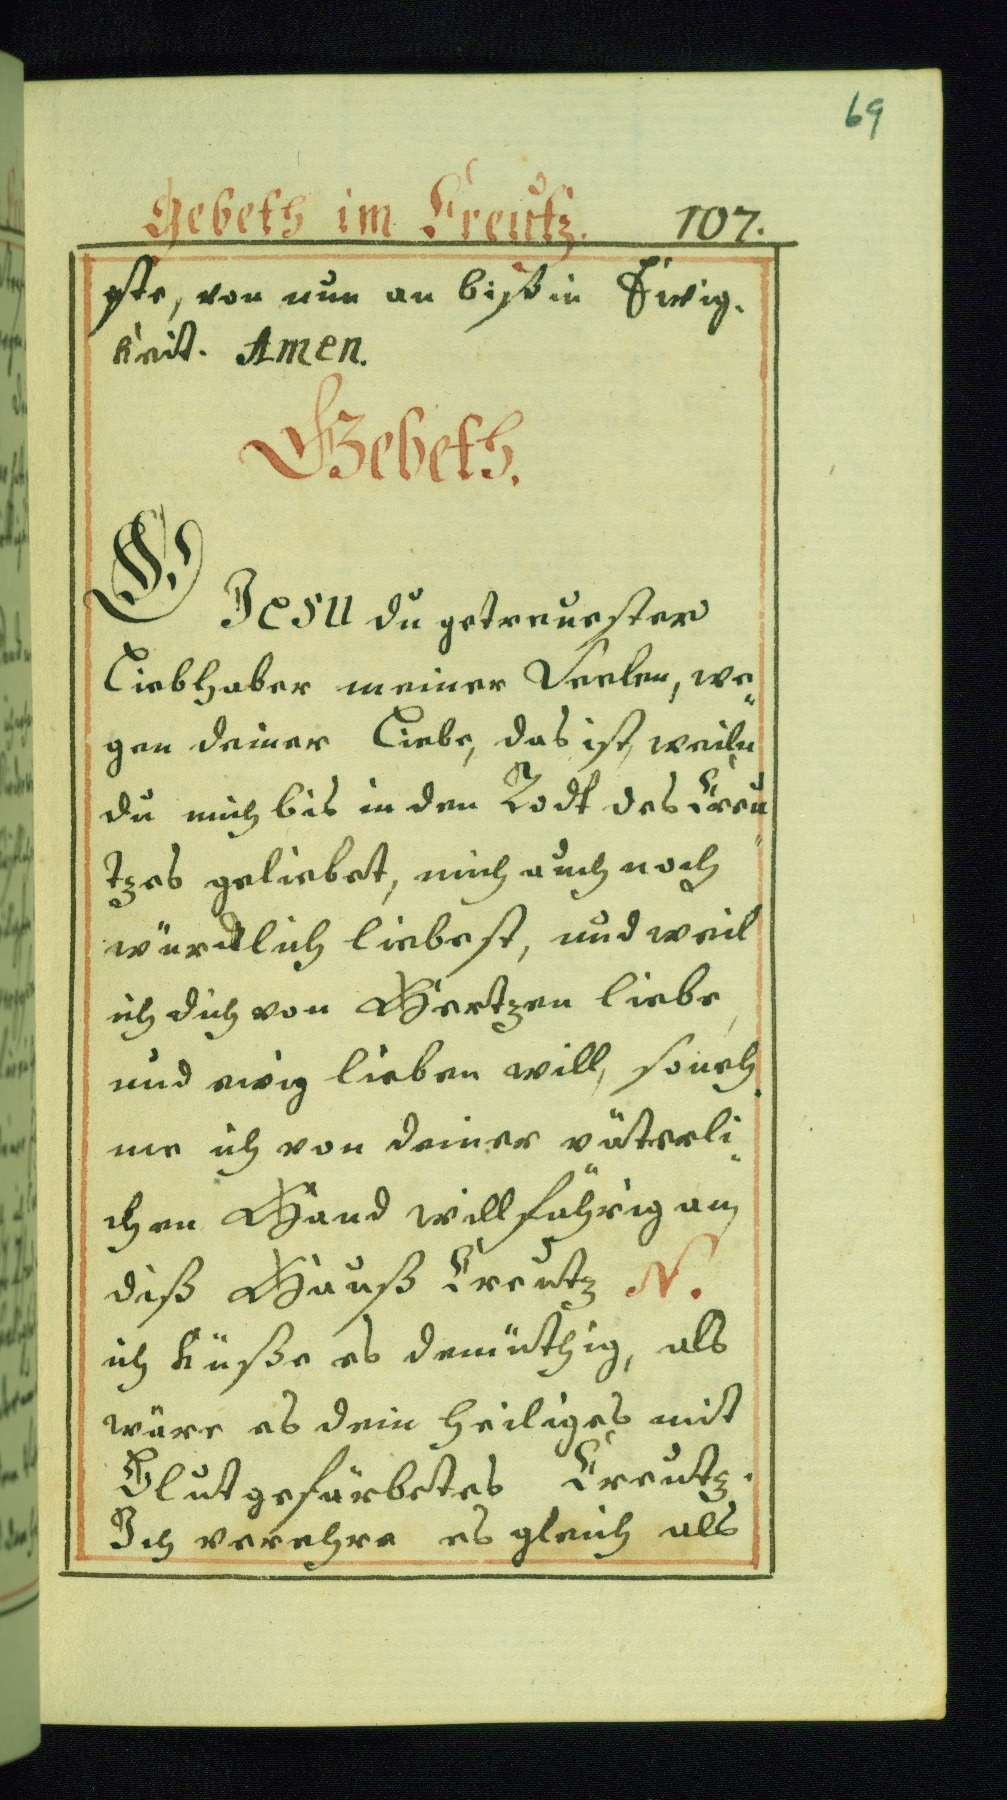 69
Gebeth im Kreütz. 107.
ste, von nun an biß in Ewig-
keit. Amen.
Gebeth.
O. Jesu du getreuester
Liebhaber meiner Seelen, we-
gen deiner Liebe, das ist, weiln
du mich bis in den Todt des Creu-
tzes geliebet, mich auch noch
würcklich liebest, und weil
ich dich von Hertzen liebe,
und ewig lieben will, so neh-
me ich von deiner väterli-
chen Hand willfährig an
diß Hauß Creutz N.
ich küße es demüthig, als
wäre es dein heiliges mit
Blut gefärbetes Creutz.
Ich verehre es gleich als